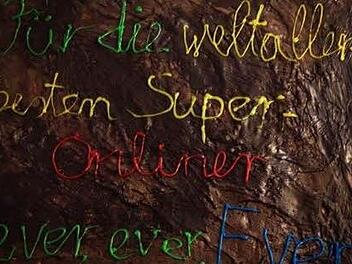 Für die weltaller
besten Super-
Onliner
ever, ever Ever